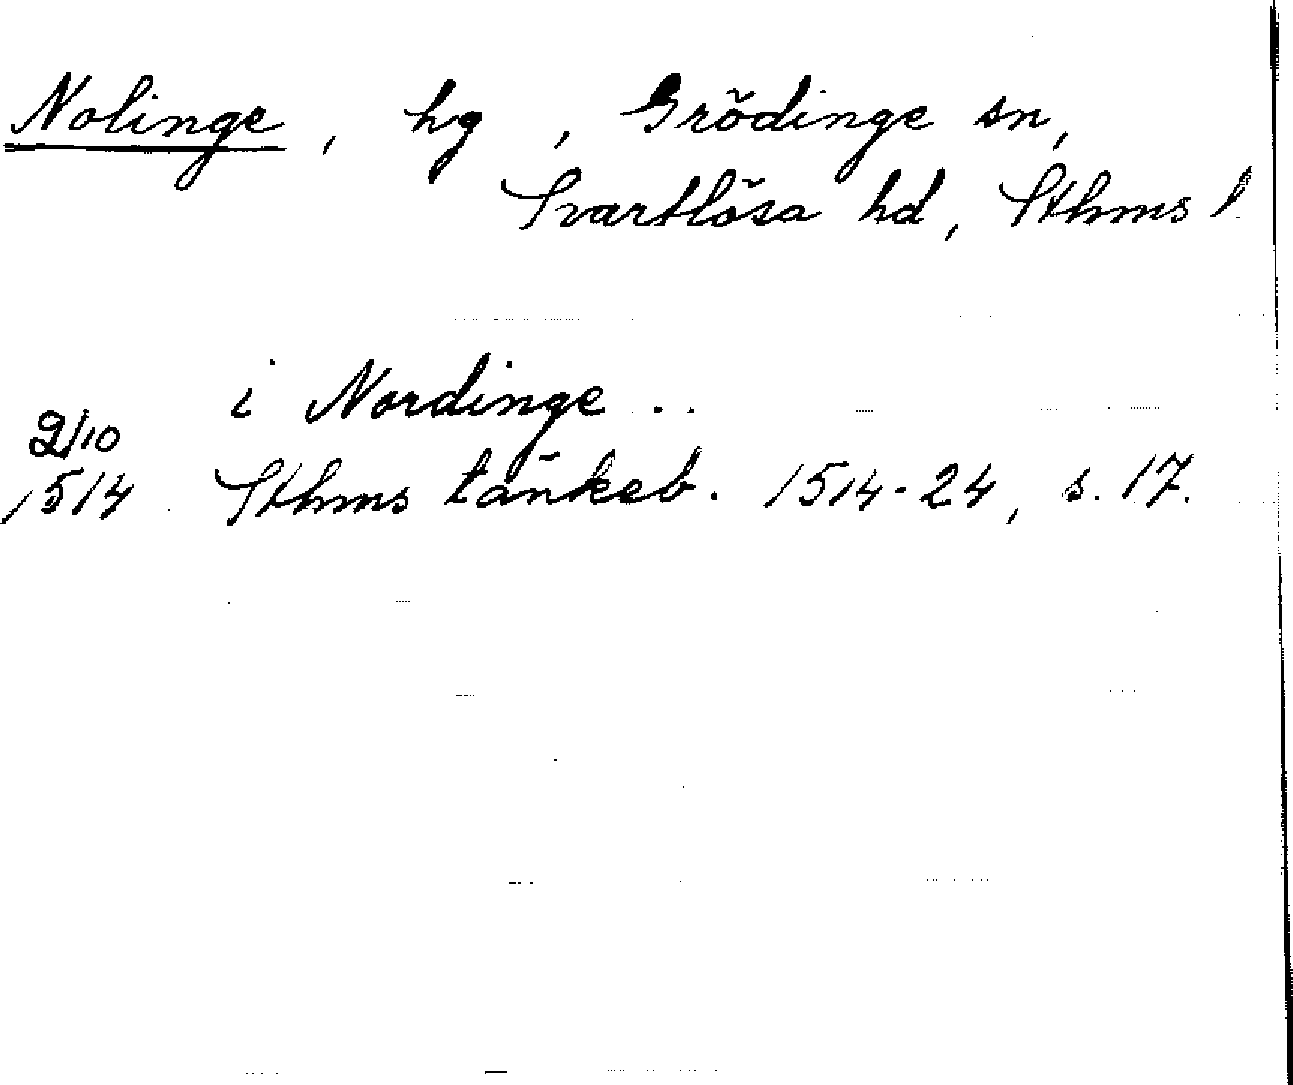 Nolinge, hg, Grödinge sn,
Svartlösa hd, Sthms l.
i Nordinge . .
2/10
1514 Sthms tänkeb. 1514-24, s. 17.